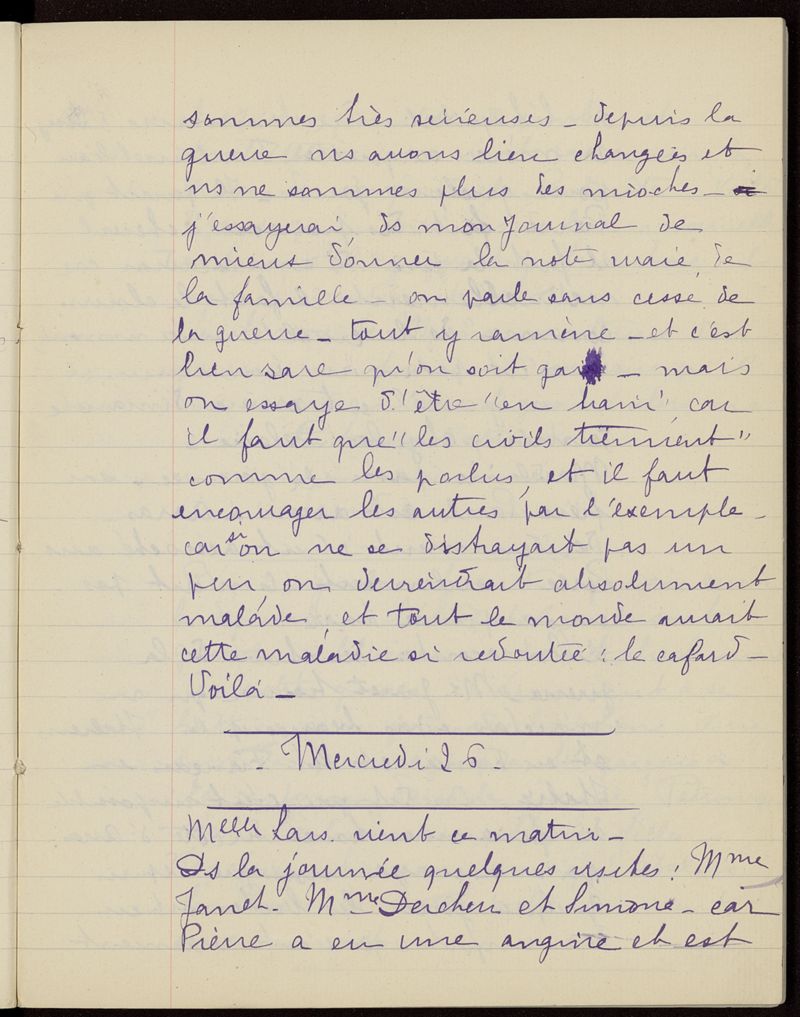 sommes très sérieuses – depuis la
guerre ns avons bien changées et
ns ne sommes plus des mioches –
j'essayerai ds mon journal de
mieux donner la note vraie de
la famille – on parle sans cesse de
la guerre – tout y ramène – et c'est
bien rare qu'on soit gai – mais
on essaye d'être "en train" car
il faut que "les civils tiennent"
comme les poilus, et il faut
encourager les autres par l'exemple –
car si on ne se distrayait pas un
peu on deviendrait absolument
malade, et tout le monde aurait
cette maladie si redoutée : le cafard –
Voilà –
- Mercredi 26 -
Melle vient ce matin –
Ds la journée quelques visites : Mme
Janet – Mme et Simone – car
Pierre a eu une angine et est